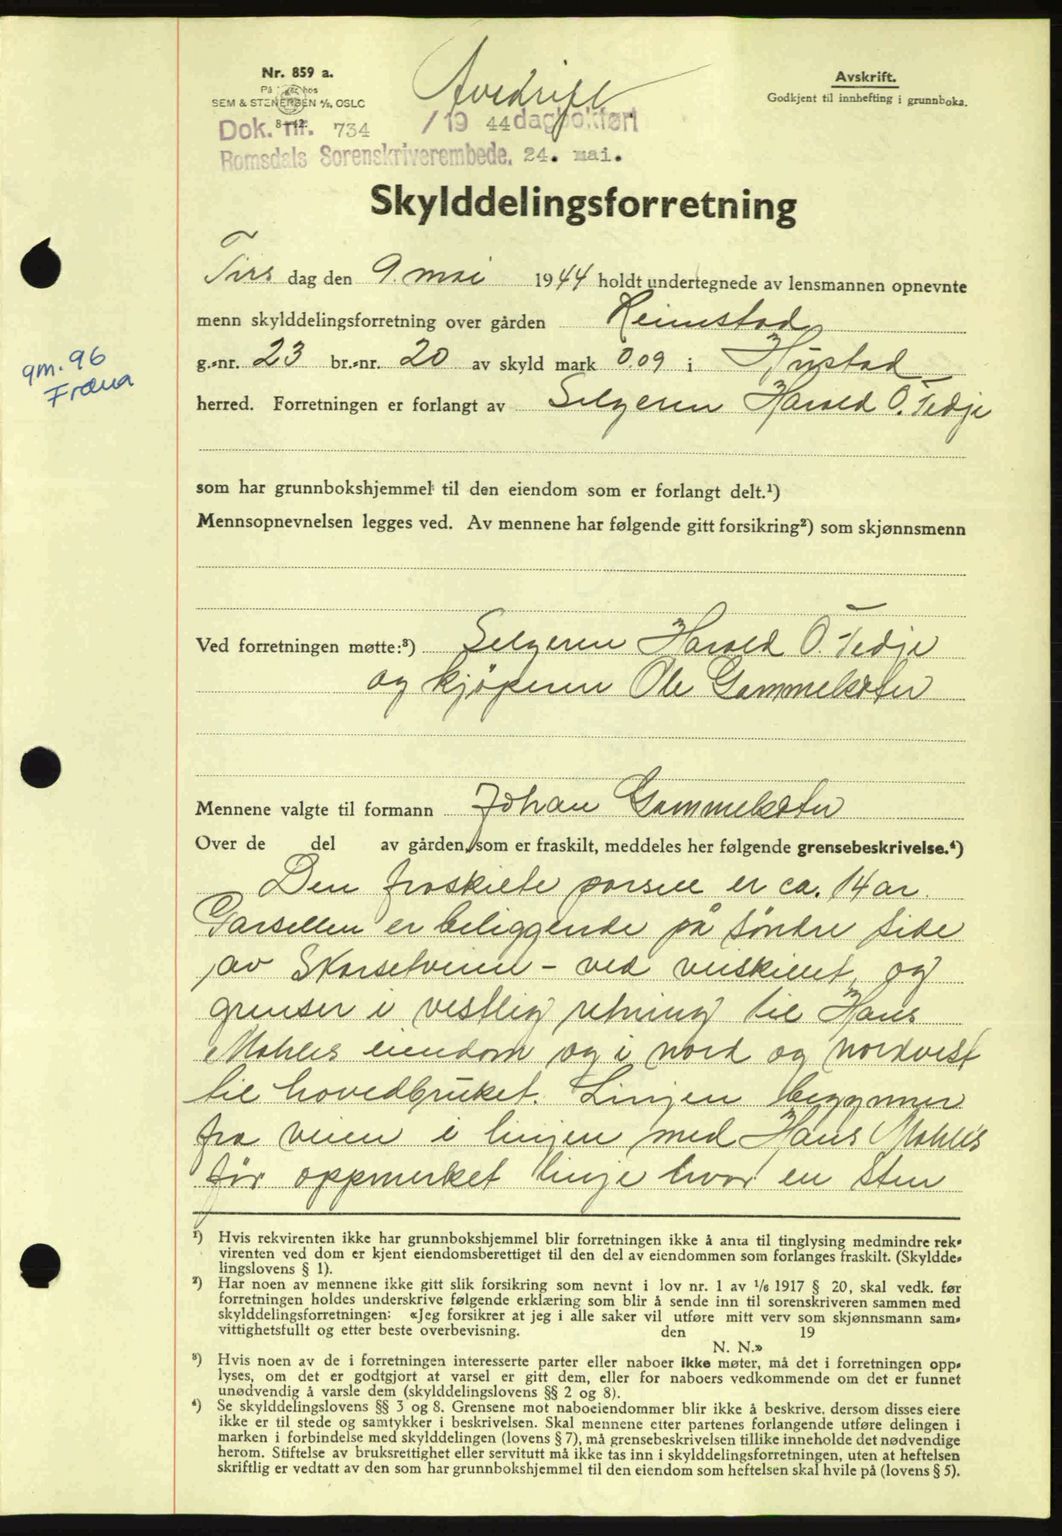 Nr. 859 a.
På lager hos
SEM & STENERSEN A/S, OSLO
8—42.
Avskrift
Avskrift.
Godkjent til innhefting i grunnboka.
Dok. nr. 734 /19 44 dagbokført
Romsdals Sorenskriverembede. 24. mai.
Skylddelingsforretning
Tirs dag den 9. mai 1944 holdt undertegnede av lensmannen opnevnte
menn skylddelingsforretning over gården Heimstad
g.-nr. 23 br.-nr. 20 av skyld mark 0.09 i Hustad
gm. 96
Fræna
herred. Forretningen er forlangt av Selgeren Harald O. Tedje
som har grunnbokshjemmel til den eiendom som er forlangt delt.¹)
Mennsopnevnelsen legges ved. Av mennene har følgende gitt forsikring²) som skjønnsmenn
Ved forretningen møtte:³) Selgeren Harald O. Tedje
og kjøperen Ole Gammelsæter
Mennene valgte til formann Johan Gammelsæter
Over de del av gården, som er fraskilt, meddeles her følgende grensebeskrivelse.⁴)
Den fraskilte parsell er ca. 14 ar.
Parsellen er beliggende på søndre side
av Skarsetveien – ved veiskillet, og
grenser i vestlig retning til Hans
Mahles eiendom og i nord og nordvest
til hovedbruket. Linjen begynner
fra veien i linjen med Hans Mahles
før oppmerket linje hvor en sten
¹) Hvis rekvirenten ikke har grunnbokshjemmel blir forretningen ikke å anta til tinglysing medmindre rek-
virenten ved dom er kjent eiendomsberettiget til den del av eiendommen som forlanges fraskilt. (Skyldde-
lingslovens § 1).
²) Har noen av mennene ikke gitt slik forsikring som nevnt i lov nr. 1 av 1/6 1917 § 20, skal vedk. før
forretningen holdes underskrive følgende erklæring som blir å sende inn til sorenskriveren sammen med
skylddelingsforretningen: «Jeg forsikrer at jeg i alle saker vil utføre mitt verv som skjønnsmann sam-
vittighetsfullt og etter beste overbevisning. den 19
N. N.»
³) Hvis noen av de i forretningen interesserte parter eller naboer ikke møter, må det i forretningen opp-
lyses, om det er godtgjort at varsel er gitt dem, eller for naboers vedkommende om det er funnet
unødvendig å varsle dem (skylddelingslovens §§ 2 og 8).
⁴) Se skylddelingslovens §§ 3 og 8. Grensene mot naboeiendommer blir ikke å beskrive, dersom disses eiere
ikke er til stede og samtykker i beskrivelsen. Skal mennene etter partenes forlangende utføre delingen i
marken i forbindelse med skylddelingen (lovens § 7), må grensebeskrivelsen tillike inneholde det nødvendige
herom. Stiftelse av bruksrettighet eller servitutt må ikke tas inn i skylddelingsforretningen, uten at heftelsen
skriftlig er vedtatt av den som har grunnbokshjemmel til den eiendom som heftelsen skal hvile på (lovens § 5).